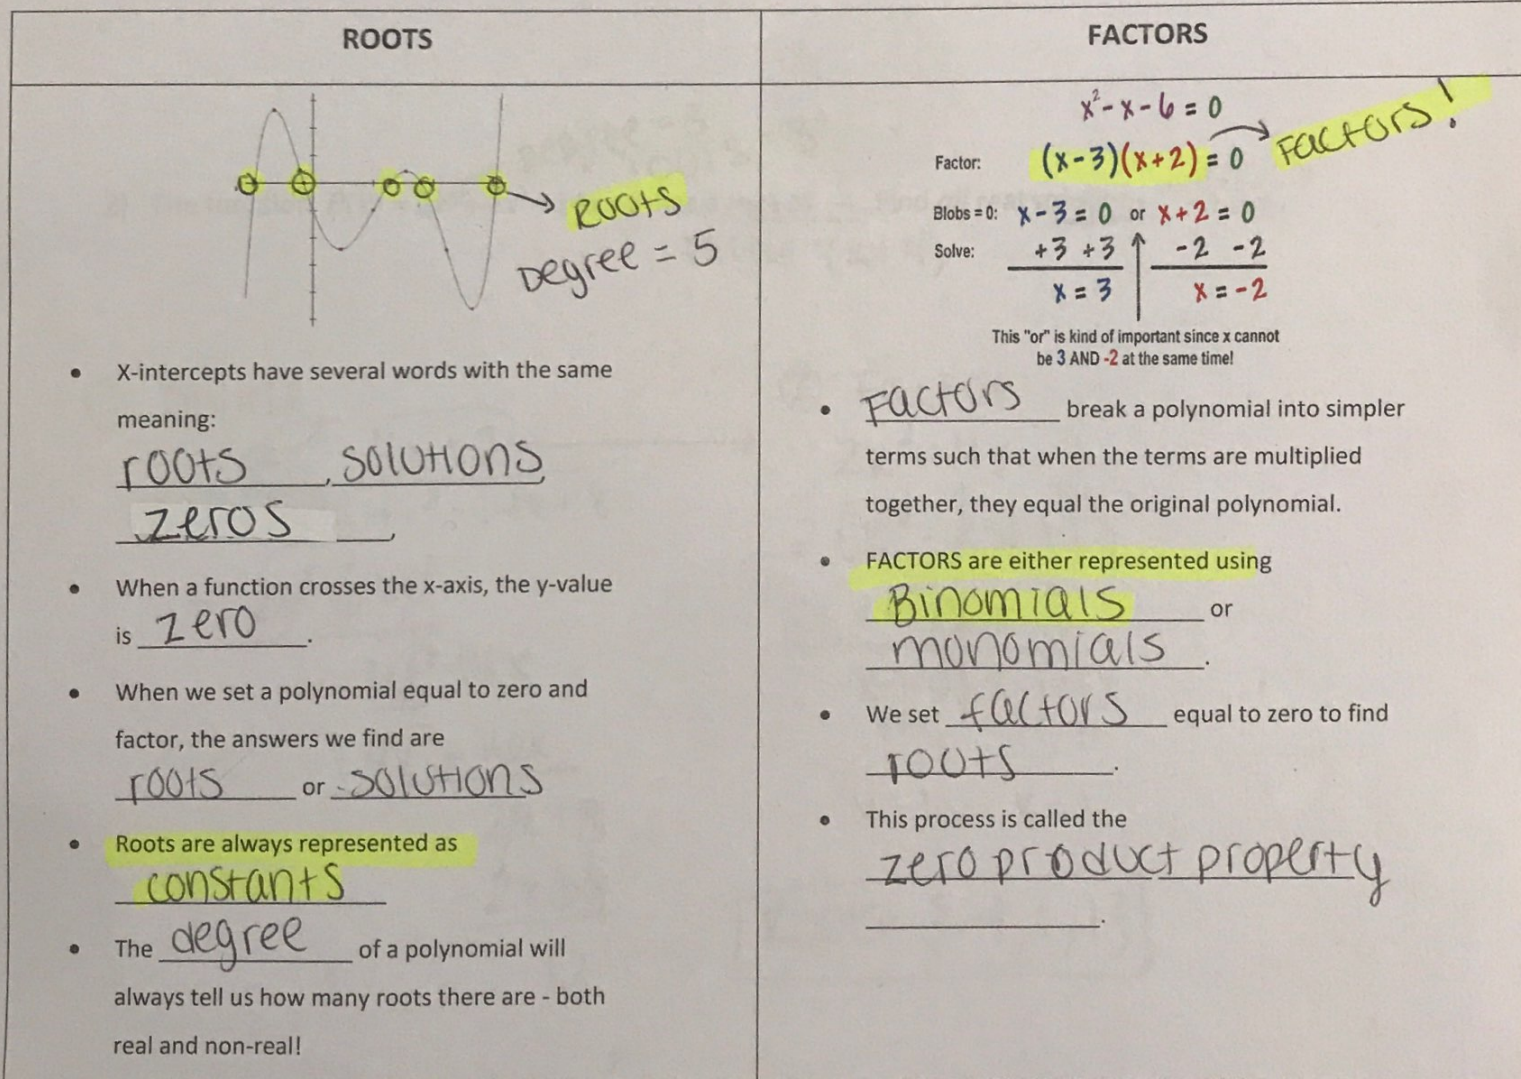 ROOTS
ROOTS
Degree = 5
X-intercepts have several words with the same
meaning:
roots, solutions,
zeros,
When a function crosses the x-axis, the y-value
is zero.
When we set a polynomial equal to zero and
factor, the answers we find are
roots or solutions
Roots are always represented as
constants
The degree of a polynomial will
always tell us how many roots there are - both
real and non-real!
FACTORS
x² - x - 6 = 0
Factor: (x-3)(x+2) = 0 FACTORS!
Blobs = 0: x - 3 = 0 or x + 2 = 0
Solve: +3 +3 -2 -2
x = 3 x = -2
This "or" is kind of important since x cannot
be 3 AND -2 at the same time!
Factors break a polynomial into simpler
terms such that when the terms are multiplied
together, they equal the original polynomial.
FACTORS are either represented using
Binomials or
monomials.
We set factors equal to zero to find
roots.
This process is called the
zero product property
.